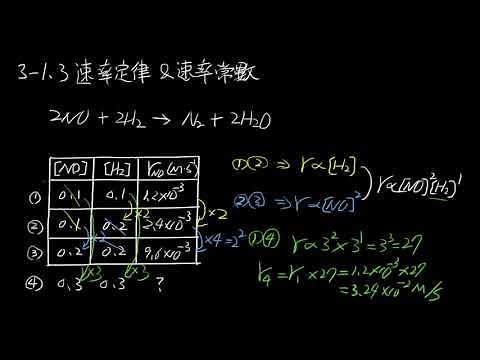 3-1.3 速率定律 & 速率常數
2NO + 2H₂ → N₂ + 2H₂O
[NO] [H₂] r_NO (M·s⁻¹)
① 0.1 0.1 1.2×10⁻³
② 0.1 0.2 2.4×10⁻³
③ 0.2 0.2 9.6×10⁻³
④ 0.3 0.3 ?
×2
×2
×2
×4=2²
×3
×3
①② ⇒ r∝[H₂]
②③ ⇒ r∝[NO]²
r∝[NO]²[H₂]¹
①④ r∝3²×3¹=3³=27
r₄=r₁×27=1.2×10⁻³×27
=3.24×10⁻² M/s